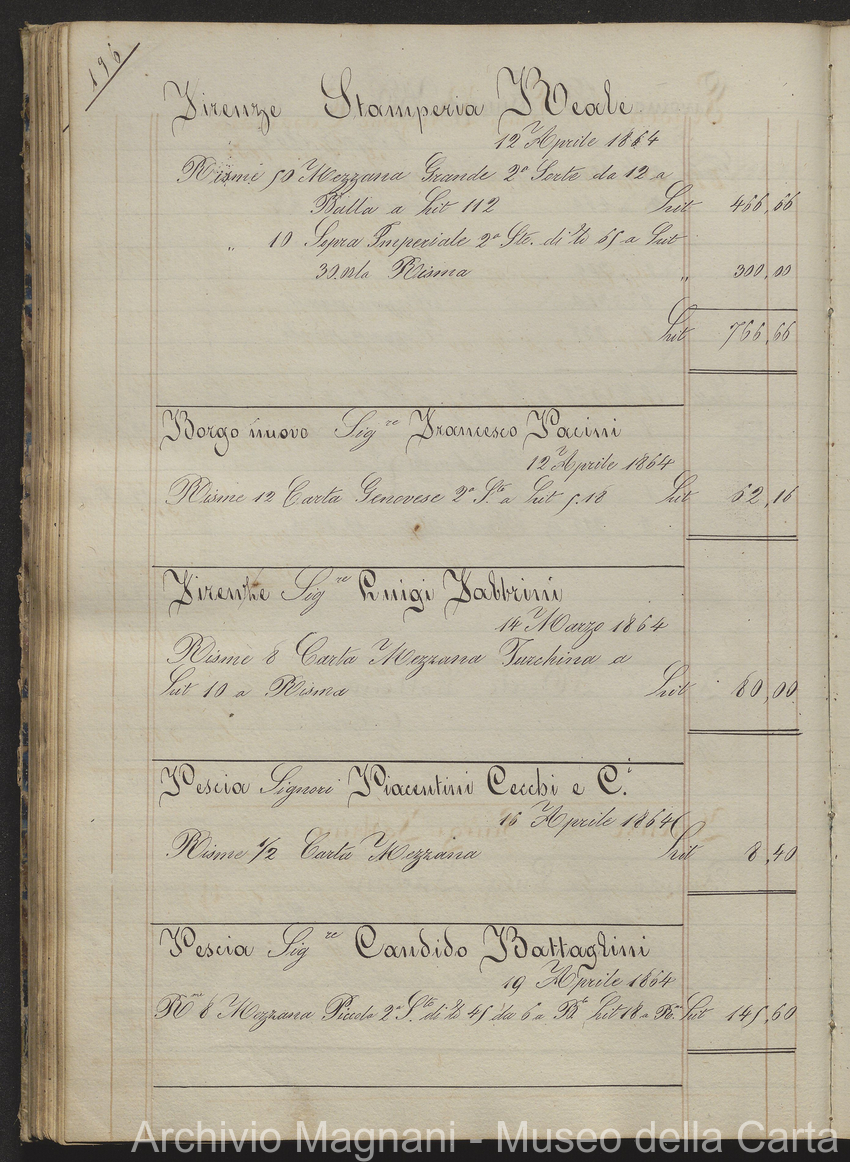 196
Firenze Stamperia Reale
12 Aprile 1864
Risme 50 Mezzana Grande 2ª Sorte da 12 a
Balla a Lit 112 Lit 466,66
" 10 Sopra Imperiale 2ª Ste. di lb 65 a Lit
30 Risma " 300,00
Lit 766,66
Borgo nuovo Sigre Francesco Pacini
12 Aprile 1864
Risme 12 Carta Genovese 2ª Ste a Lit 5.18 Lit 62,16
Firenze Sigre Luigi Fabbrini
14 Marzo 1864
Risme 8 Carta Mezzana Turchina a
Lit 10 a Risma Lit 80,00
Pescia Signori Piacentini Cecchi e C.i
16 Aprile 1864
Risme 1/2 Carta Mezzana Lit 8,40
Pescia Sigre Candido Battaglini
19 Aprile 1864
Rme 8 Mezzana Piccola 2ª Ste di lb 45 da 6 a Lit 18 a Lit 145,60
Archivio Magnani - Museo della Carta